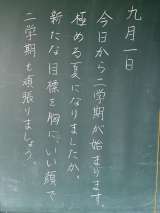 九月一日
今日から二学期が始まります。
極める夏になりましたか。
新たな目標を胸に、いい顔で
二学期も頑張りましょう。